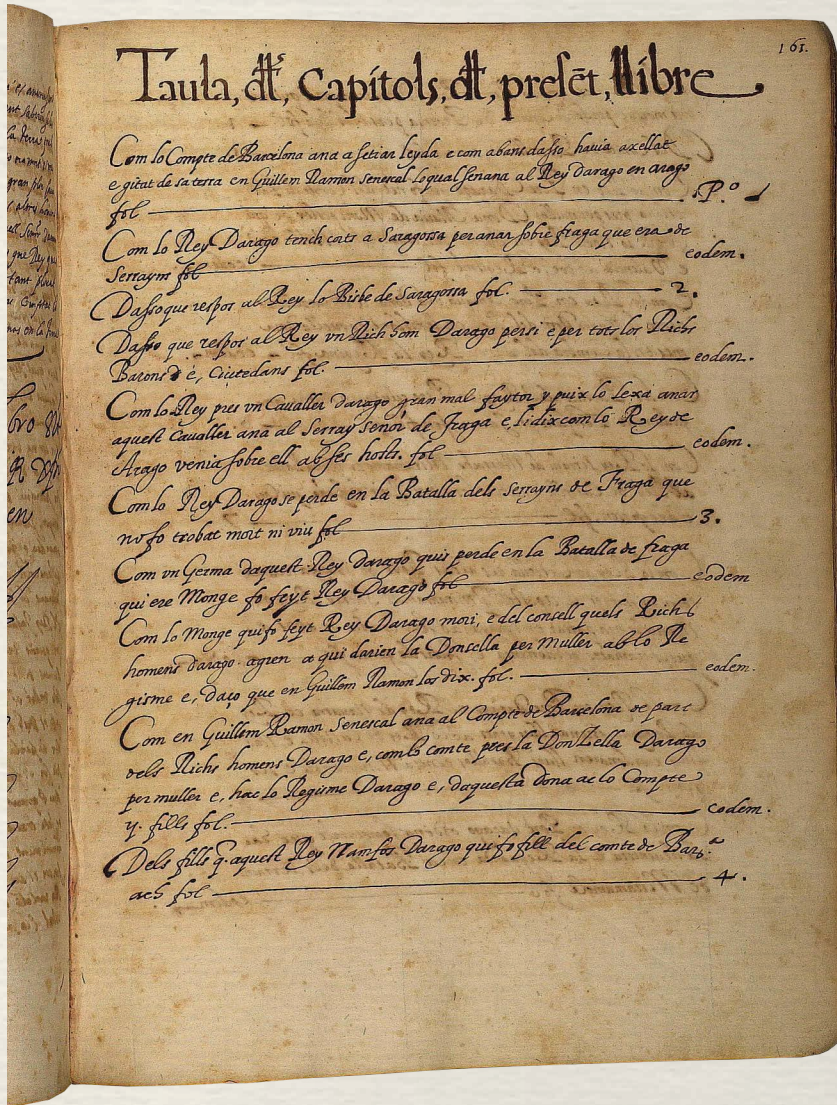 161.
Taula, dls, Capitols, dl, presēt, llibre
Com lo Compte de Barcelona ana asetiar leyda e com abans dasso hauia axellat
e gitat de sa terra en Guillem Ramon senescal lo qual senana al Rey darago en arago
fol P.º 1
Com lo Rey Darago tench corts a Saragossa per anar sobre fraga que era de
Serrayns fol eodem.
Dasso que respos al Rey lo Bisbe de Saragossa fol. 2.
Dasso que respos al Rey vn Rich hom Darago per si e per tots los Richs
Barons e, Ciutedans fol. eodem.
Com lo Rey pres vn Caualler darago gran mal faytor y puix lo lexa anar
aquest Caualler ana al Serray senor de fraga e, li dix com lo Rey de
Arago venia sobre ell ab ses hosts. fol eodem.
Com lo Rey Darago se perde en la Batalla dels Serrayns de Fraga que
no fo trobat mort ni viu fol 3.
Com vn Germa daquest Rey darago quis perde en la Batalla de fraga
qui ere Monge fo feyt Rey Darago fol eodem
Com lo Monge qui fo feyt Rey Darago mori, e del consell quels Richs
homens darago agren a qui darien la Donsella per muller ab lo Re
gisme e, daço que en Guillem Ramon los dix. fol. eodem.
Com en Guillem Ramon Senescal ana al Compte de Barcelona de part
dels Richs homens Darago e, com lo comte pres la DonZella Darago
per muller e, hac lo Regisme Darago e, daquesta dona ac lo Compte
y. fills fol. eodem.
Dels fills q̄ aquest Rey Namfos Darago qui fo fill del comte de Bars.ª
ach fol 4.